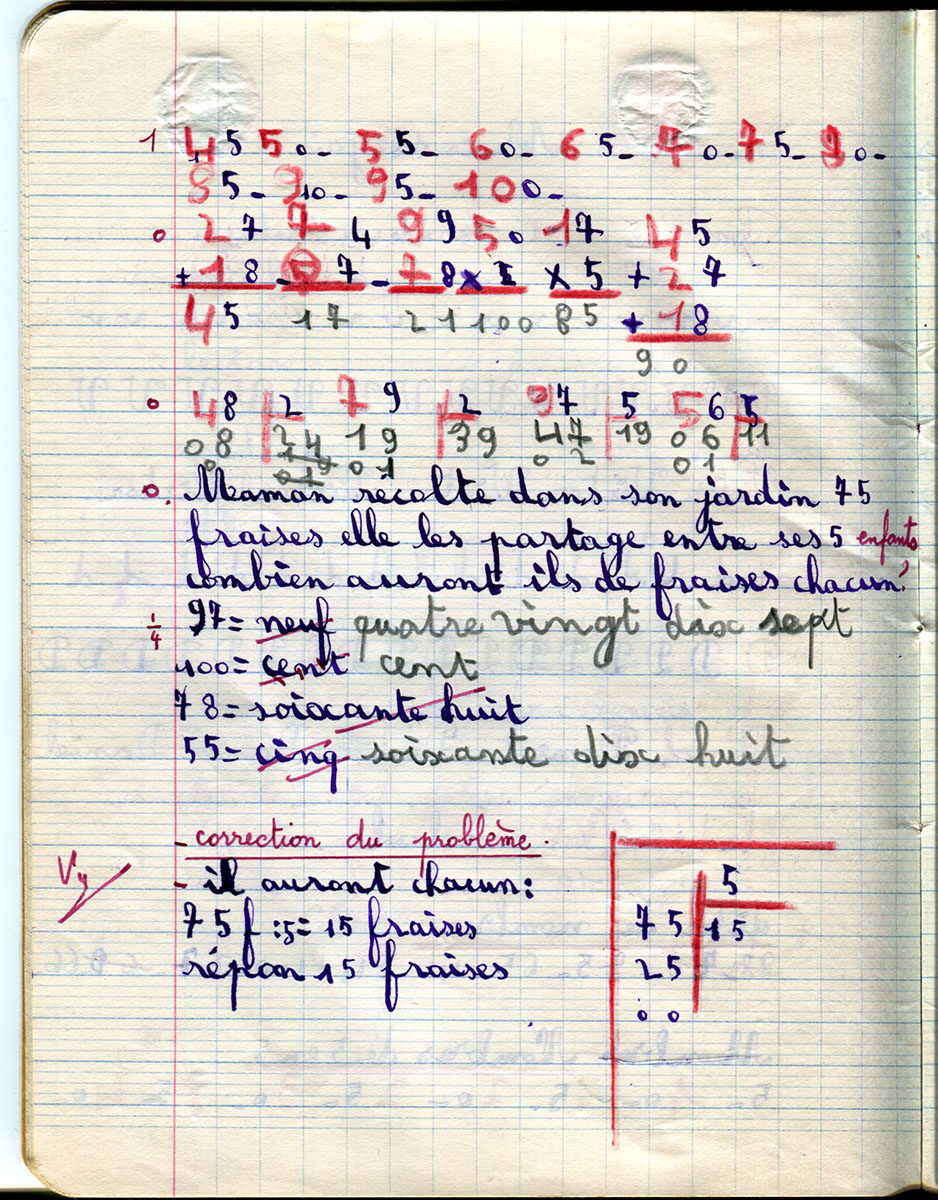 1 45 50- 55- 60- 65- 70- 75- 90-
85- 90- 95- 100-
0 27 74 99 50 17 45
+18 -57 -78 x2 x5 +27
45 17 21 100 85 +18
90
0 48 2 79 2 97 5 56 5
08 24 19 39 47 19 06 11
0 01 02 01
0. Maman récolte dans son jardin 75
fraises elle les partage entre ses 5 enfants,
combien auront ils de fraises chacun?
1/4 97= neuf quatre vingt dix sept
100= cent cent
78= soixante huit
55= cinq soixante dix huit
- correction du problème.
Vu - il auront chacun: 5
75f :5= 15 fraises 75 15
répon 15 fraises 25
00